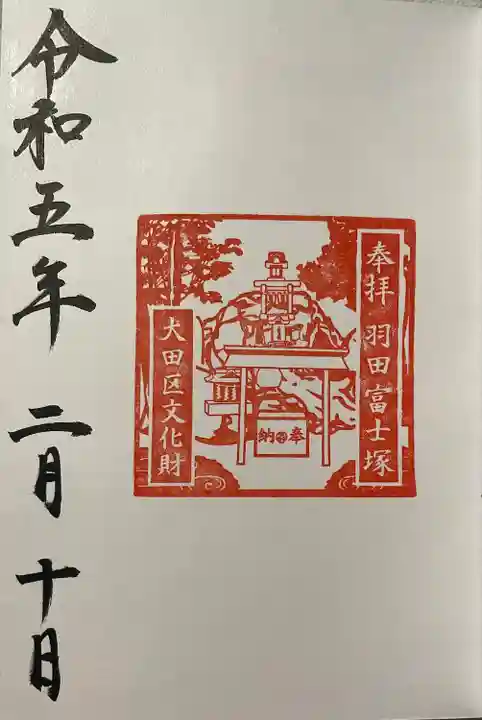 奉拝 羽田富士塚
奉納
大田区文化財
令和五年 二月 十日